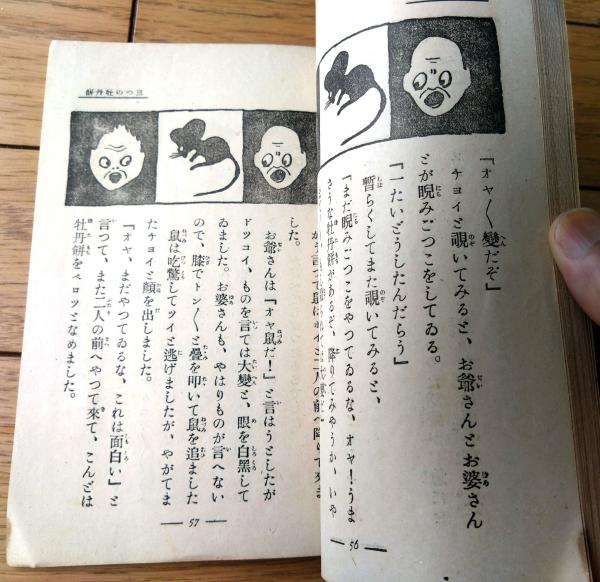 「オヤ〳〵變だぞ」
チヨイと覗いてみると、お爺さんとお婆さん
とが睨みごつこをしてゐる。
「一たいどうしたんだらう」
暫らくしてまた覗いてみると、
「まだ睨みごつこをやつてゐるな、オヤ！うま
さうな牡丹餅があるぞ、降りてみやうか、いや
— 56 —
三つの牡丹餅
した。
お爺さんは「オヤ鼠だ！」と言はうとしたが
ドツコイ、ものを言ては大變と、眼を白黑して
ゐました。お婆さんも、やはりものが言へない
ので、膝でトン〳〵と疊を叩いて鼠を追ました
鼠は吃驚してツイと逃げましたが、やがてま
たチヨイと顏を出しました。
「オヤ、まだやつてゐるな、これは面白い」と
言つて、また二人の前へやつて來て、こんどは
牡丹餅をペロツとなめました。
— 57 —